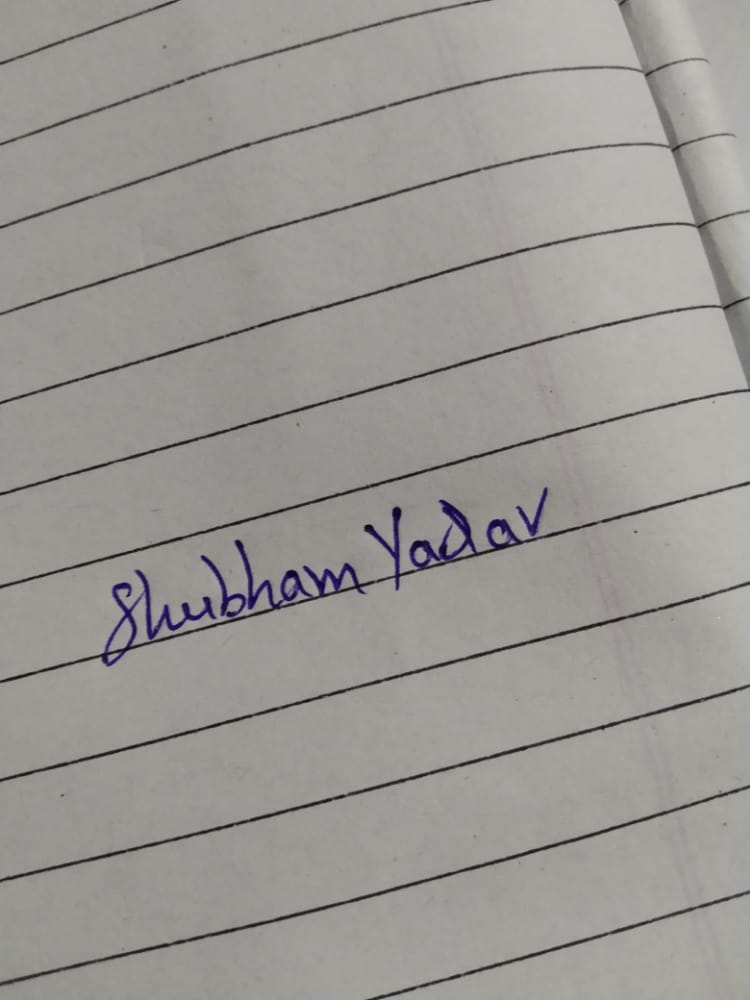 Shubham Yadav